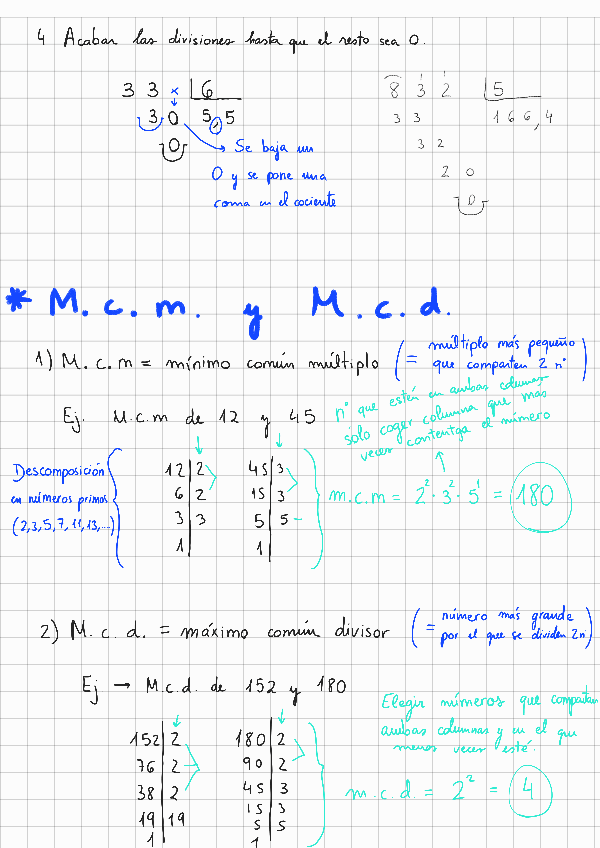 4 Acabar las divisiones hasta que el resto sea 0.
3 3 × 6
3 0 5,5
0
Se baja un
0 y se pone una
coma en el cociente
8 3 2 5
3 3 1 6 6, 4
3 2
2 0
0
* M. c. m. y M. c. d.
1) M. c. m = mínimo común múltiplo (= múltiplo más pequeño
que comparten 2 nº)
Ej. M.c.m de 12 y 45
nº que estén en ambas columnas
solo coger columna que más
veces contentga el número
Descomposición
en números primos
(2,3,5,7,11,13,...)
12 | 2
6 | 2
3 | 3
1 |
45 | 3
15 | 3
5 | 5
1 |
m.c.m = 2² · 3² · 5¹ = 180
2) M. c. d. = máximo común divisor (= número más grande
por el que se dividen 2n)
Ej → M.c.d. de 152 y 180
152 | 2
76 | 2
38 | 2
19 | 19
1 |
180 | 2
90 | 2
45 | 3
15 | 3
5 | 5
1 |
Elegir números que compartan
ambas columnas y en el que
menos veces esté.
m.c.d. = 2² = 4